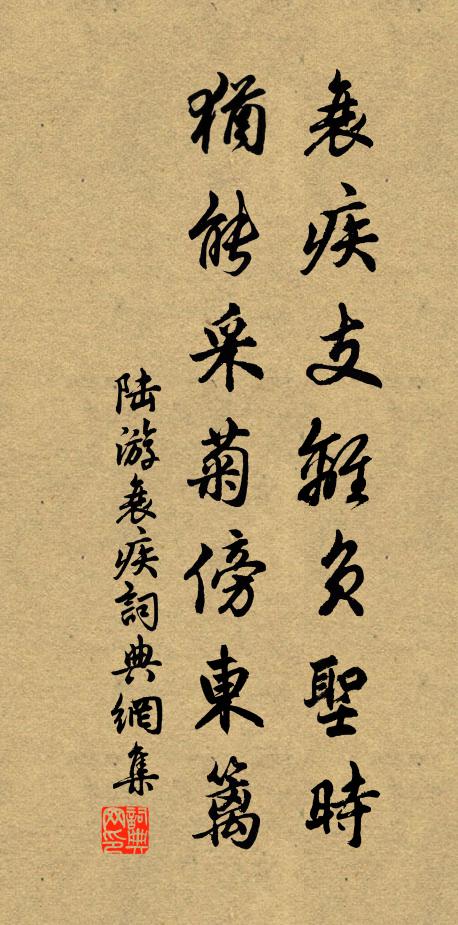 衰疾支離負聖時
猶能采菊傍東籬
陆游衰疾詞典網集
詞典网印